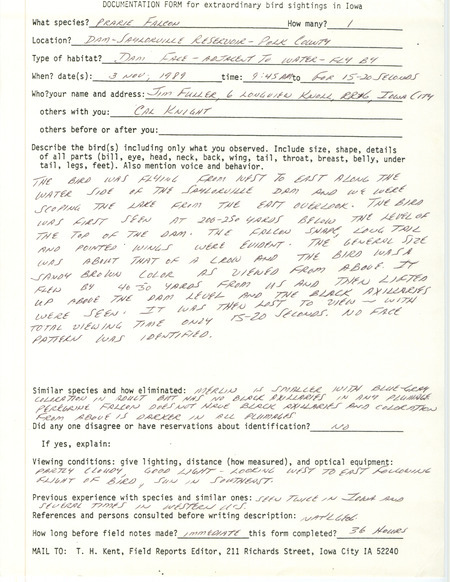 DOCUMENTATION FORM for extraordinary bird sightings in Iowa
What species? PRARIE FALCON How many? 1
Location? DAM-SAYLORVILLE RESERVOIR-POLK COUNTY
Type of habitat? DAM FACE-ADJACENT TO WATER-FLY BY
When? date(s): 3 NOV, 1989 time: 9:45AM to FOR 15-20 SECONDS
Who? your name and address: JIM FULLER, 6 LONGVIEW KNOLL, RR#6, IOWA CITY
others with you: CAL KNIGHT
others before or after you:
Describe the bird(s) including only what you observed. Include size, shape, details
of all parts (bill, eye, head, neck, back, wing, tail, throat, breast, belly, under
tail, legs, feet). Also mention voice and behavior.
THE BIRD WAS FLYING FROM WEST TO EAST ALONG THE
WATER SIDE OF THE SAYLORVILLE DAM AND WE WERE
SCOPING THE LAKE FROM THE EAST OVERLOOK. THE BIRD
WAS FIRST SEEN AT 200-250 YARDS BELOW THE LEVEL OF
THE TOP OF THE DAM. THE FALCON SHAPE, LONG TAIL
AND POINTED WINGS WERE EVIDENT. THE GENERAL SIZE
WAS ABOUT THAT OF A CROW AND THE BIRD WAS A
SANDY BROWN COLOR AS VIEWED FROM ABOVE. IT
FLEW BY 40-50 YARDS FROM US AND THEN LIFTED
UP ABOVE THE DAM LEVEL AND THE BLACK AXILLARIES
WERE SEEN. IT WAS THEN LOST TO VIEW - WITH
TOTAL VIEWING TIME ONLY 15-20 SECONDS. NO FACE
PATTERN WAS IDENTIFIED.
Similar species and how eliminated: MERLIN IS SMALLER WITH BLUE-GRAY
COLORATION IN ADULT BUT HAS NO BLACK AXILLARIES IN ANY PLUMAGE
PEREGRINE FALCON DOES NOT HAVE BLACK AXILLARIES AND COLORATION
FROM ABOVE IS DARKER IN ALL PLUMAGES.
Did any one disagree or have reservations about identification? NO
If yes, explain:
Viewing conditions: give lighting, distance (how measured), and optical equipment:
PARTLY CLOUDY, GOOD LIGHT - LOOKING WEST TO EAST FOLLOWING
FLIGHT OF BIRD, SUN IN SOUTHEAST.
Previous experience with species and similar ones: SEEN TWICE IN IOWA AND
SEVERAL TIMES IN WESTERN U.S.
References and persons consulted before writing description: NAT'L GEO
How long before field notes made? IMMEDIATE this form completed? 36 HOURS
MAIL TO: T. H. Kent, Field Reports Editor, 211 Richards Street, Iowa City IA 52240